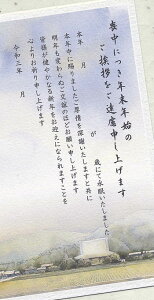 喪中につき年末年始の
ご挨拶をご遠慮申し上げます
本年 月 が 歳にて永眠いたしました
本年中に賜りましたご厚情を深謝いたしますと共に
明年も変わらぬご交誼のほどお願い申し上げます
皆様が健やかなる新年をお迎えになられますことを
心よりお祈り申し上げます
令和三年 月